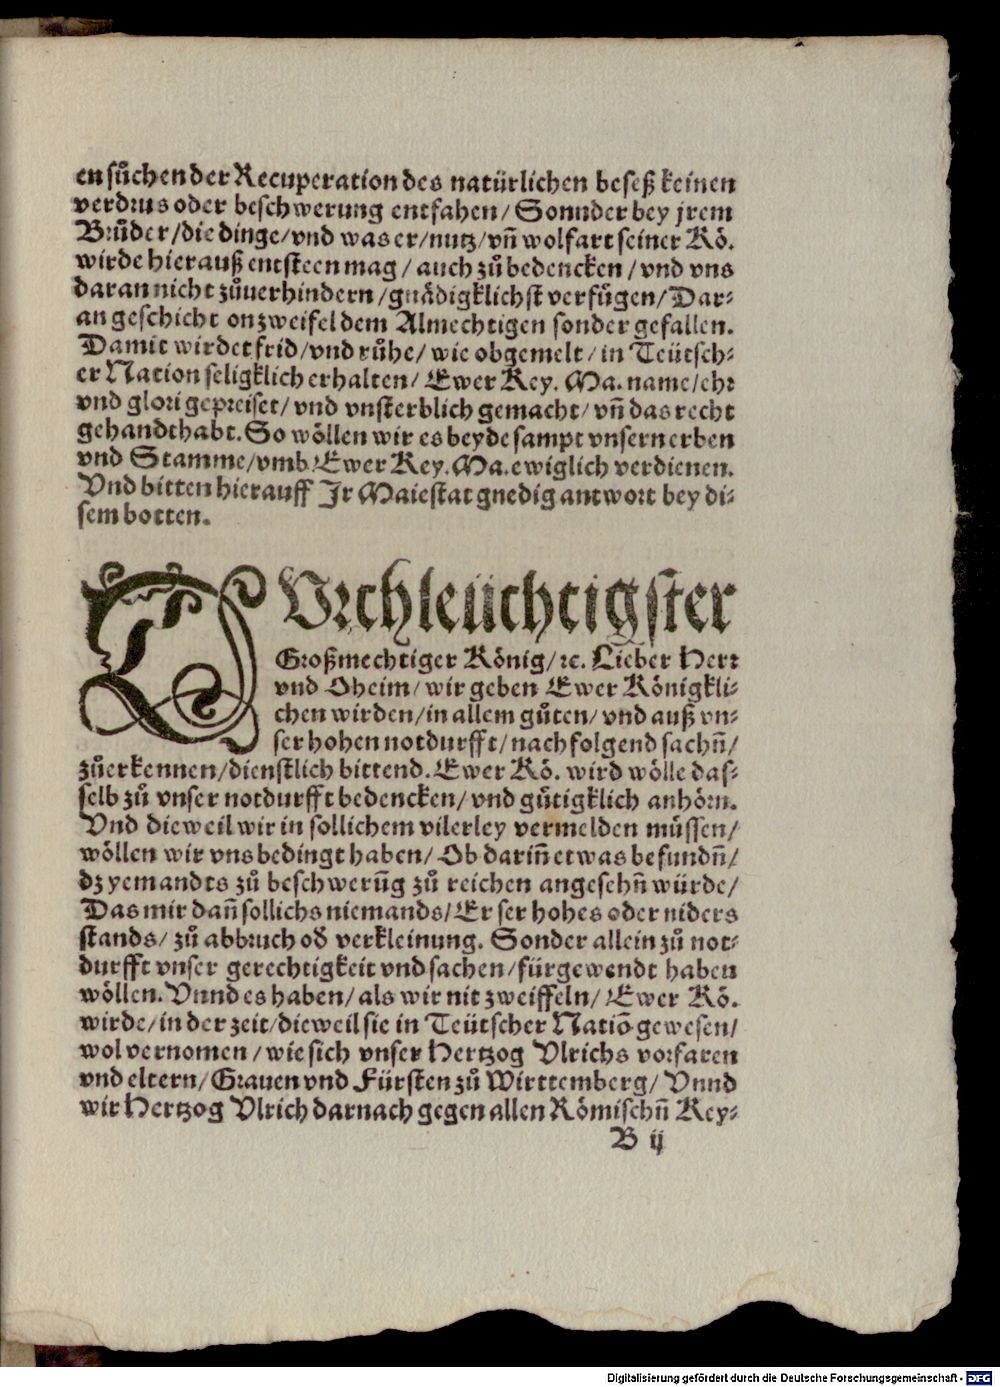 en sůchen der Recuperation des natürlichen beseß keinen
verdrus oder beschwerung entfahen/ Sonnder bey jrem
Brůder/die dinge/vnd was er/nutz/vn̄ wolfart seiner Kö.
wirde hierauß entsteen mag/ auch zů bedencken/ vnd vns
daran nicht zůuerhindern/gnådigklichst verfůgen/ Dar-
an geschicht on zweifel dem Almechtigen sonder gefallen.
Damit wirdet frid/vnd růhe/ wie obgemelt/ in Teütsch-
er Nation seligklich erhalten/ Ewer Key. Ma. name/ehr
vnd glori gepreiset/ vnd vnsterblich gemacht/ vn̄ das recht
gehandthabt. So wöllen wir es beyde sampt vnsern erben
vnd Stamme/vmb Ewer Key. Ma. ewiglich verdienen.
Vnd bitten hierauff Ir Maiestat gnedig antwort bey di-
sem botten.
DVrchleüchtigster
Großmechtiger König/ ꝛc. Lieber Herr
vnd Oheim/ wir geben Ewer Königkli-
chen wirden/in allem gůten/ vnd auß vn-
ser hohen notdurfft/ nachfolgend sachn̄/
zůerkennen/dienstlich bittend. Ewer Kö. wird wölle das-
selb zů vnser notdurfft bedencken/ vnd gůtigklich anhörn.
Vnd dieweil wir in sollichem vilerley vermelden müssen/
wöllen wir vns bedingt haben/ Ob darin̄ etwas befundn̄/
dz yemandts zů beschwerūg zů reichen angesehn̄ würde/
Das mir dan̄ sollichs niemands/ Er ser hohes oder niders
stands/ zů abbruch od̄ verkleinung. Sonder allein zů not-
durfft vnser gerechtigkeit vnd sachen/fürgewendt haben
wöllen. Vnnd es haben/ als wir nit zweiffeln/ Ewer Kö.
wirde/in der zeit/dieweil sie in Teütscher Natiō gewesen/
wol vernomen/ wie sich vnser Hertzog Vlrichs vorfaren
vnd eltern/ Grauen vnd Fürsten zů Wirttemberg/ Vnnd
wir Hertzog Vlrich darnach gegen allen Römischn̄ Key-
B ij
Digitalisierung gefördert durch die Deutsche Forschungsgemeinschaft - DFG